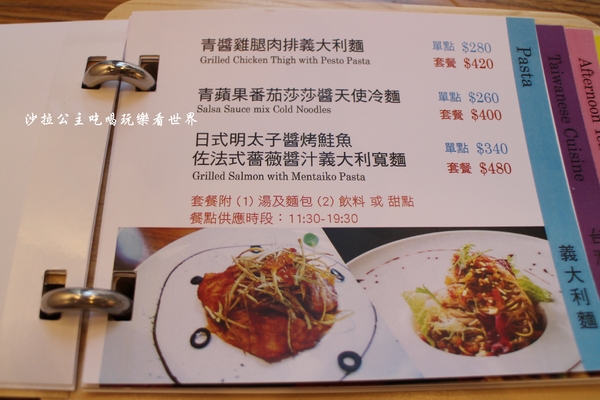 青醬雞腿肉排義大利麵
單點 $280
Grilled Chicken Thigh with Pesto Pasta
套餐 $420
青蘋果番茄莎莎醬天使冷麵
單點 $260
Salsa Sauce mix Cold Noodles
套餐 $400
日式明太子醬烤鮭魚
佐法式薔薇醬汁義大利寬麵
單點 $340
Grilled Salmon with Mentaiko Pasta
套餐 $480
套餐附 (1) 湯及麵包 (2) 飲料 或 甜點
餐點供應時段：11:30-19:30
Pasta
義大利麵
Taiwanese Cuisine
Afternoon
沙拉公主吃喝玩樂看世界